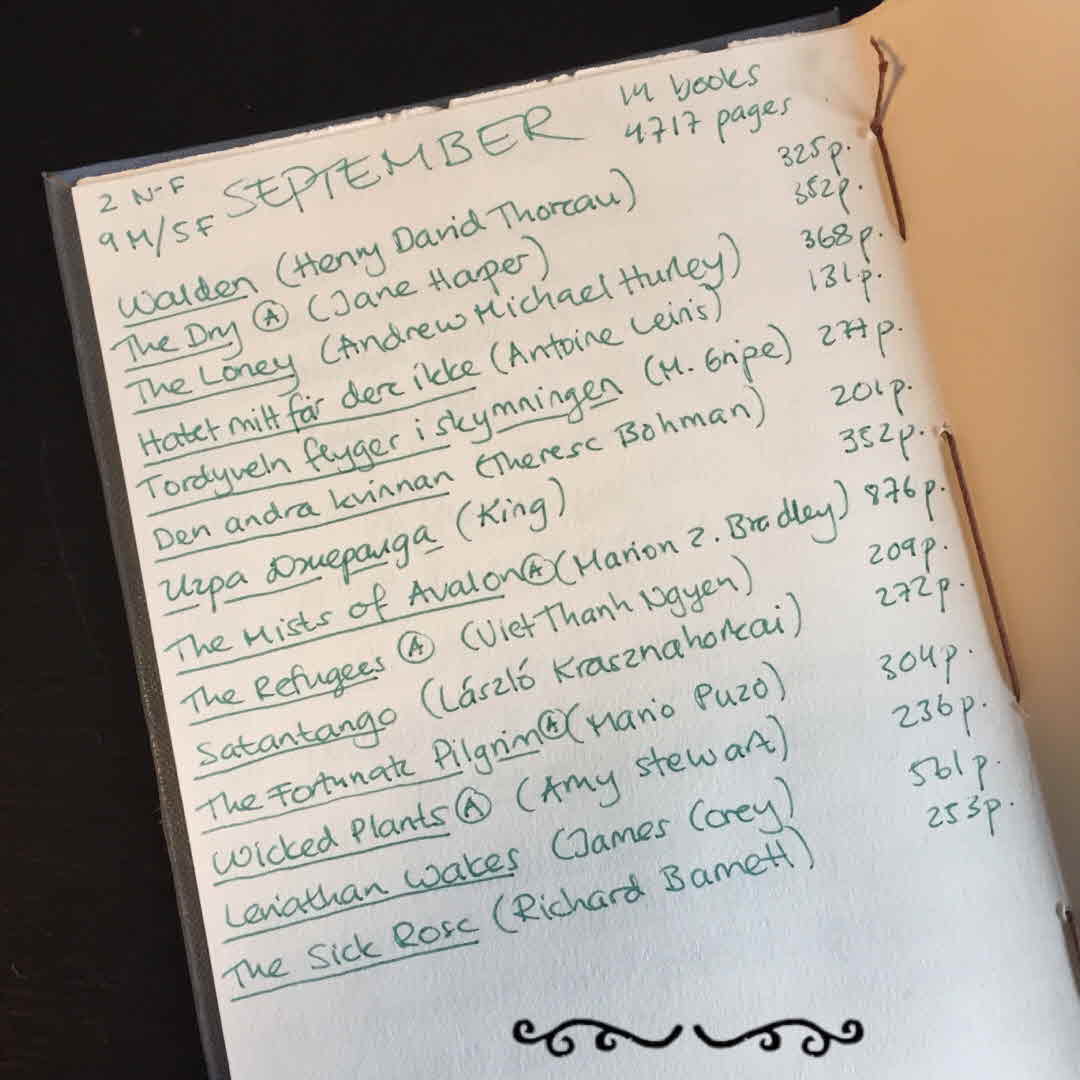 SEPTEMBER
14 books
4717 pages
2 N-F
9 M/SF
Walden (Henry David Thoreau) 325p.
The Dry Ⓐ (Jane Harper) 352p.
The Loney (Andrew Michael Hurley) 368p.
Hatet mitt får dere ikke (Antoine Leiris) 131p.
Tordyveln flyger i skymningen (M. Gripe) 277p.
Den andra kvinnan (Therese Bohman) 201p.
Игра Джералда (King) 352p.
The Mists of Avalon Ⓐ (Marion Z. Bradley) 876p.
The Refugees Ⓐ (Viet Thanh Ngyen) 209p.
Satantango (László Krasznahorkai) 272p.
The Fortunate Pilgrim Ⓐ (Mario Puzo) 304p.
Wicked Plants Ⓐ (Amy Stewart) 236p.
Leviathan Wakes (James Corey) 561p.
The Sick Rose (Richard Barnett) 253p.